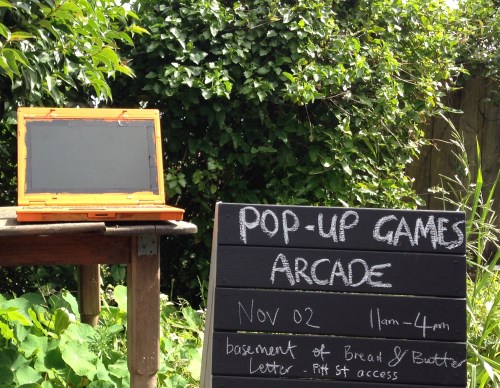 POP-UP GAMES
ARCADE
Nov 02 11am-4pm
basement of Bread & Butter
Letter - Pitt St access